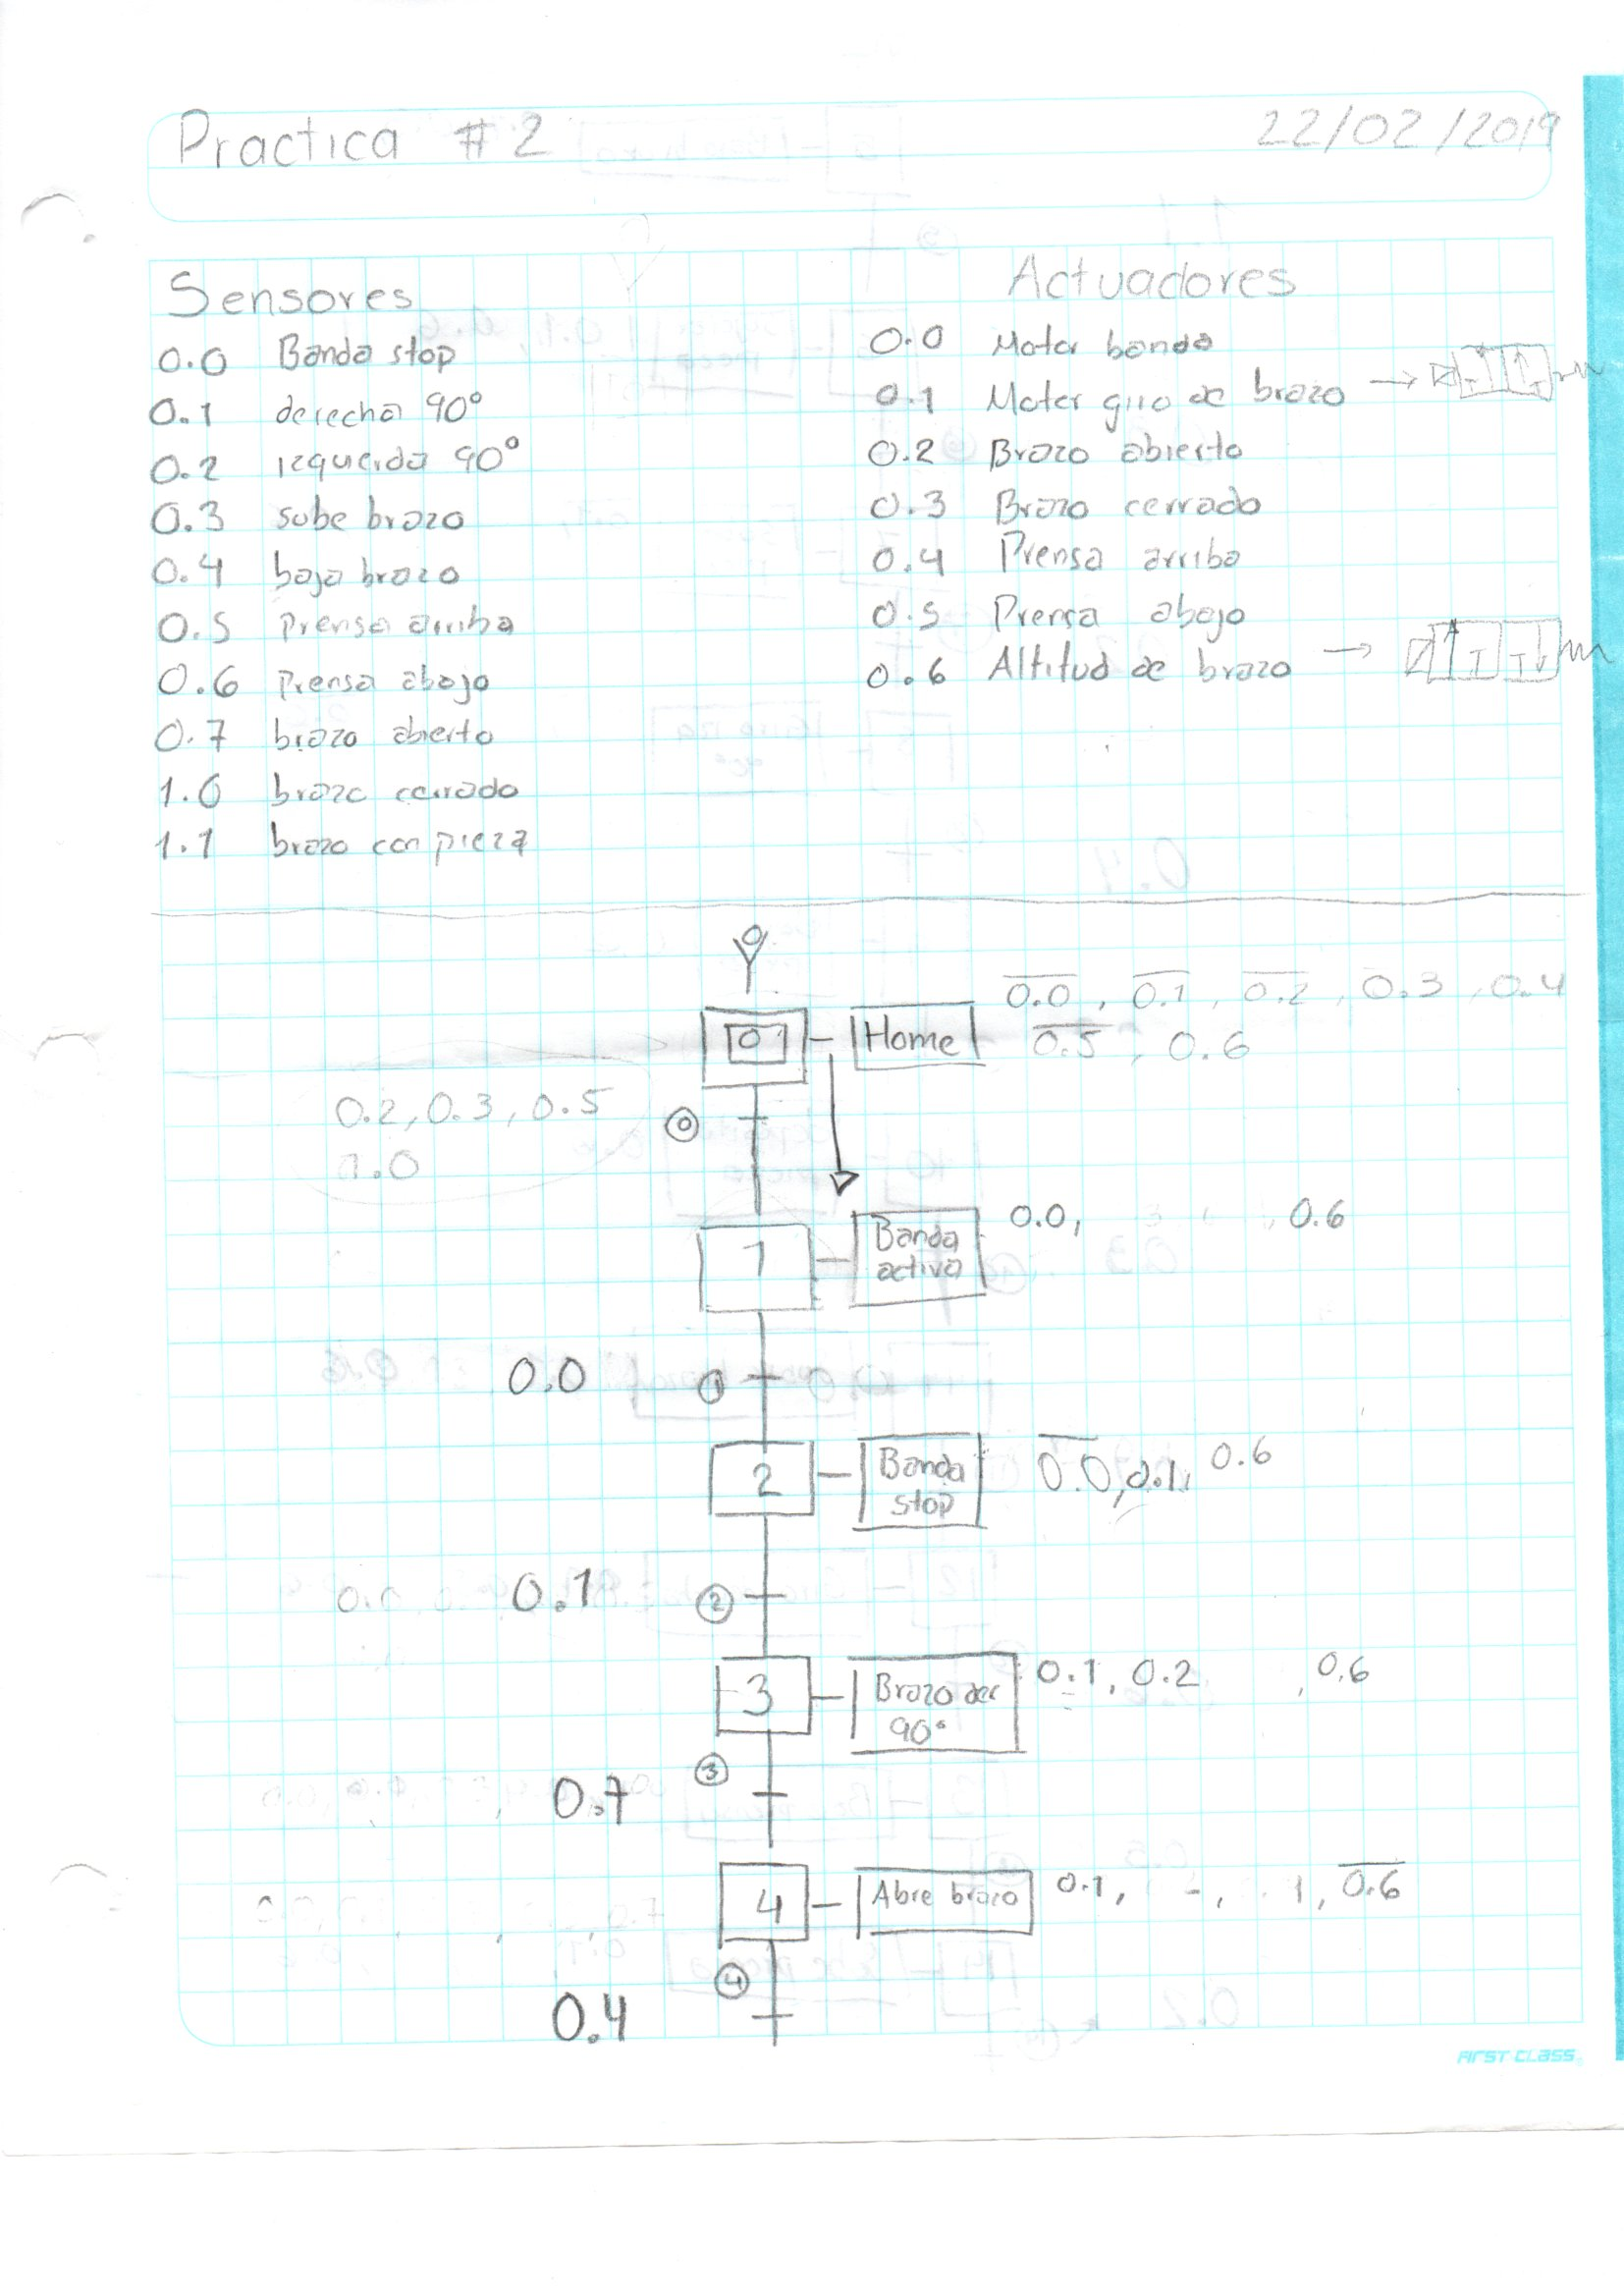 Practica # 2
22/02/2019
Sensores
0.0 Banda stop
0.1 derecha 90°
0.2 izquierda 90°
0.3 sube brazo
0.4 baja brazo
0.5 Prensa arriba
0.6 Prensa abajo
0.7 brazo abierto
1.0 brazo cerrado
1.1 brazo con pieza
Actuadores
0.0 Motor banda
0.1 Motor giro de brazo →
0.2 Brazo abierto
0.3 Brazo cerrado
0.4 Prensa arriba
0.5 Prensa abajo
0.6 Altitud de brazo →
01 Home
0.0, 0.1, 0.2, 0.3, 0.4
0.5, 0.6
0.2, 0.3, 0.5
1.0
0
1 Banda activa 0.0, 0.6
0.0 1
2 Banda stop 0.0, 0.1, 0.6
0.1 2
3 Brazo der 90° 0.1, 0.2, 0.6
0.7 3
4 Abre brazo 0.1, 0.6
0.4 4
FIRST CLASS